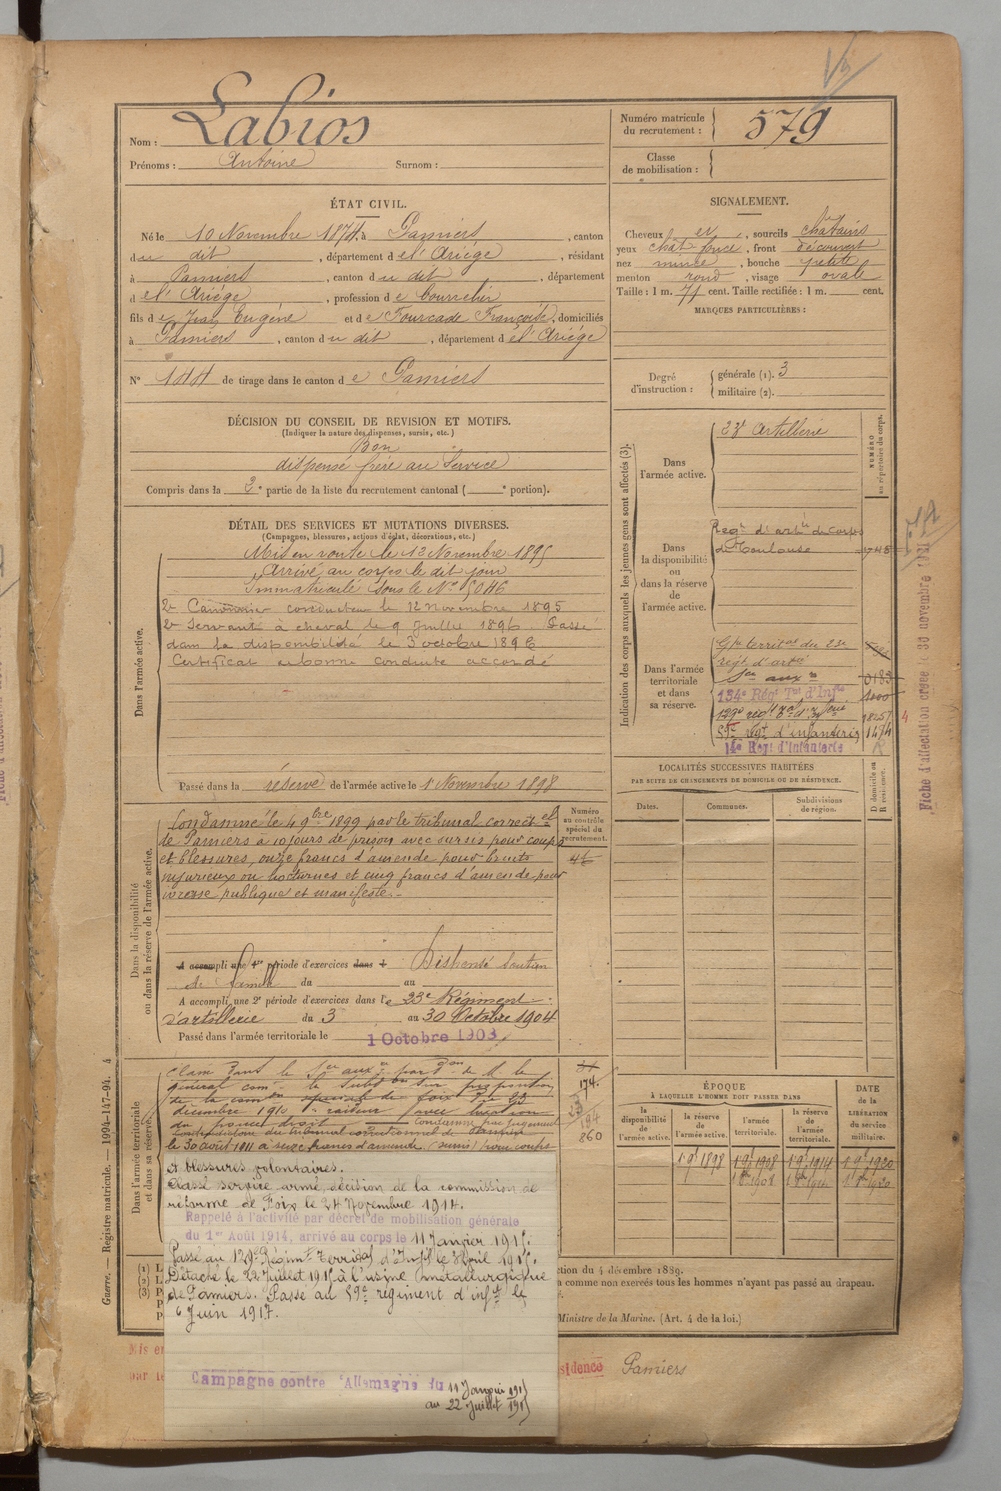 Nom : Labios
Prénoms : Antoine Surnom :
Numéro matricule du recrutement : 579
Classe de mobilisation :
ÉTAT CIVIL.
Né le 10 Novembre 1874, à Pamiers, canton
du dit, département de l'Ariége, résidant
à Pamiers, canton du dit, département
de l'Ariége, profession de
fils de Jean Eugéne et de Fourcade Françoise, domiciliés
à Pamiers, canton du dit, département de l'Ariége
N° 144 de tirage dans le canton de Pamiers
SIGNALEMENT.
Cheveux et, sourcils châtains
yeux chat foncé, front découvert
nez mince, bouche petite
menton rond, visage ovale
Taille : 1 m. 71 cent. Taille rectifiée : 1 m. cent.
MARQUES PARTICULIÈRES :
Degré d'instruction : générale (1). 3
militaire (2).
DÉCISION DU CONSEIL DE REVISION ET MOTIFS.
(Indiquer la nature des dispenses, sursis, etc.)
Bon
dispensé frère au Service
Compris dans la 2e partie de la liste du recrutement cantonal ( e portion).
DÉTAIL DES SERVICES ET MUTATIONS DIVERSES.
(Campagnes, blessures, actions d'éclat, décorations, etc.)
Dans l'armée active.
Mis en route le 12 Novembre 1895
Arrivé au corps le dit jour
Immatriculé sous le No 5046
2e Canonnier conducteur le 12 Novembre 1895
2e Servant à cheval le 9 Juillet 1896. Passé
dans la disponibilité le 3 octobre 1896
Certificat de bonne conduite accordé
Passé dans la réserve de l'armée active le 1er Novembre 1898
Indication des corps auxquels les jeunes gens sont affectés (3).
NUMÉRO au répertoire du corps.
Dans l'armée active.
23e Artillerie
Dans la disponibilité ou dans la réserve de l'armée active.
Regt d'artie de corps
de Toulouse 1748
Dans l'armée territoriale et dans sa réserve.
Gpe territal du 23e
regt d'artie
Sce auxre 0183
134e Régt Tal d'Infie 1000
129e regt 18257
59e regt d'infanterie 1494
14e Regt d'Infanterie R
LOCALITÉS SUCCESSIVES HABITÉES
PAR SUITE DE CHANGEMENTS DE DOMICILE OU DE RÉSIDENCE.
Dates. Communes. Subdivisions de région.
D domicile ou R résidence.
Dans la disponibilité ou dans la réserve de l'armée active.
Numéro au contrôle spécial du recrutement.
Condamné le 4 9bre 1899 par le tribunal correctel
de Pamiers à 10 jours de prison avec sursis pour coups
et blessures, onze francs d'amende pour bruits
injurieux ou nocturnes et cinq francs d'amende pour
ivresse publique et manifeste.-
A accompli une 1re période d'exercices dans l Dispensé Soutien
de famille du au
A accompli une 2e période d'exercices dans le 23e Régiment
d'artillerie du 3 au 30 Octobre 1904
Passé dans l'armée territoriale le 1 Octobre 1903
Dans l'armée territoriale et dans sa réserve.
Classé dans le Sce auxre par don de M. le
général comt la Subdon sur proposition
de la comon spéciale de Foix du 23
décembre 1910
condamné par jugement
contradictoire du tribunal correctionnel de Pamiers
le 30 août 1911 à seize francs d'amende (sursis) pour coups
et blessures volontaires.
Classé service armé, décision de la commission de
réforme de Foix le 24 Novembre 1914.
Rappelé à l'activité par décret de mobilisation générale
du 1er Août 1914, arrivé au corps le 11 Janvier 1915.
Passé au 129e Régimt Territal d'Infie le 8 Avril 1915.
Détaché le 22 Juillet 1915 à l'usine métallurgique
de Pamiers. Passé au 59e régiment d'infie le
6 Juin 1917.
Campagne contre l'Allemagne du 11 Janvier 1915
au 22 Juillet 1915
174.
860
ÉPOQUE
À LAQUELLE L'HOMME DOIT PASSER DANS
la disponibilité de l'armée active. la réserve de l'armée active. l'armée territoriale. la réserve de l'armée territoriale.
DATE de la LIBÉRATION du service militaire.
1 9bre 1898 1 9bre 1908 1 9bre 1914 1 9bre 1920
ction du 4 décembre 1889.
comme non exercés tous les hommes n'ayant pas passé au drapeau.
Ministre de la Marine. (Art. 4 de la loi.)
Mis en
par le
sidence Pamiers
Guerre. — Registre matricule. — 1994-147-94. 4
Fiche d'affectation créée le 30 novembre